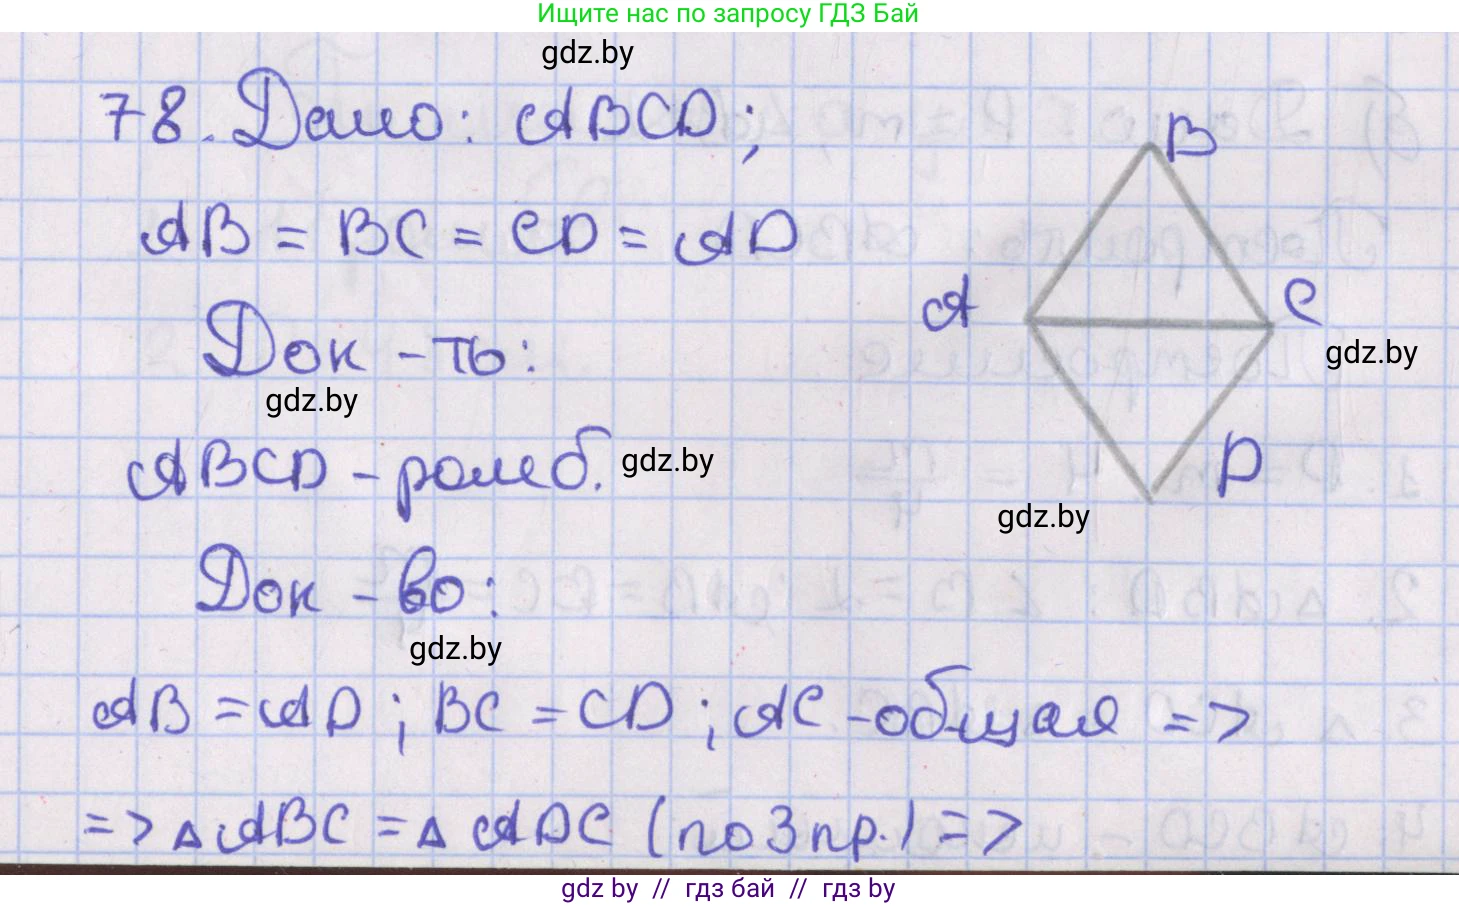 Ищите нас по запросу ГДЗ Бай
gdz.by
78. Дано: ABCD;
AB = BC = CD = AD
Док-ть:
gdz.by
ABCD - ромб.
gdz.by
Док-во:
gdz.by
AB = AD; BC = CD; AC - общая =>
=> △ ABC = △ ADC (по 3 пр.) =>
B
A
C
gdz.by
D
gdz.by
gdz by // гдз бай // гдз by